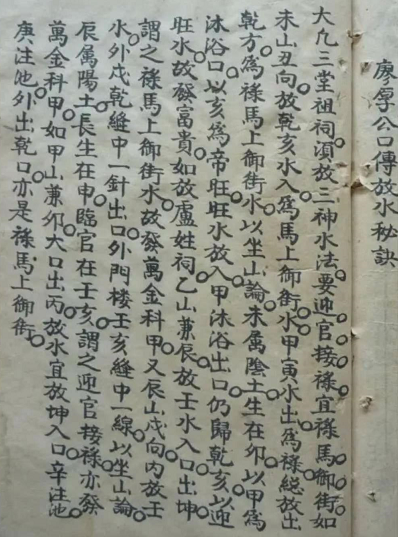 廖厚公口傳放水秘訣
大凢三堂祖祠湏放三神水法要迎官接祿宜祿馬御街如
未山丑向放乾亥水入爲馬上御街水甲寅水出爲祿総放出
乾方爲祿馬上御街水以坐山論未属陰土生在卯以甲爲
沐浴口以亥爲帝旺旺水放入甲沐浴出口仍歸乾亥以迎
旺水故發富貴如放盧姓祠乙山兼辰放壬水入口出坤
謂之祿馬上御街水故發萬金科甲又辰山戌向内放壬
水外戌乾縫中一針出口外門楼壬亥縫中一線以坐山論
辰属陽土長生在申臨官在壬亥謂之迎官接祿亦發
萬金科甲如甲山兼卯大口出丙放水宜放坤入口辛注池
庚注池外出乾口亦是祿馬上御街